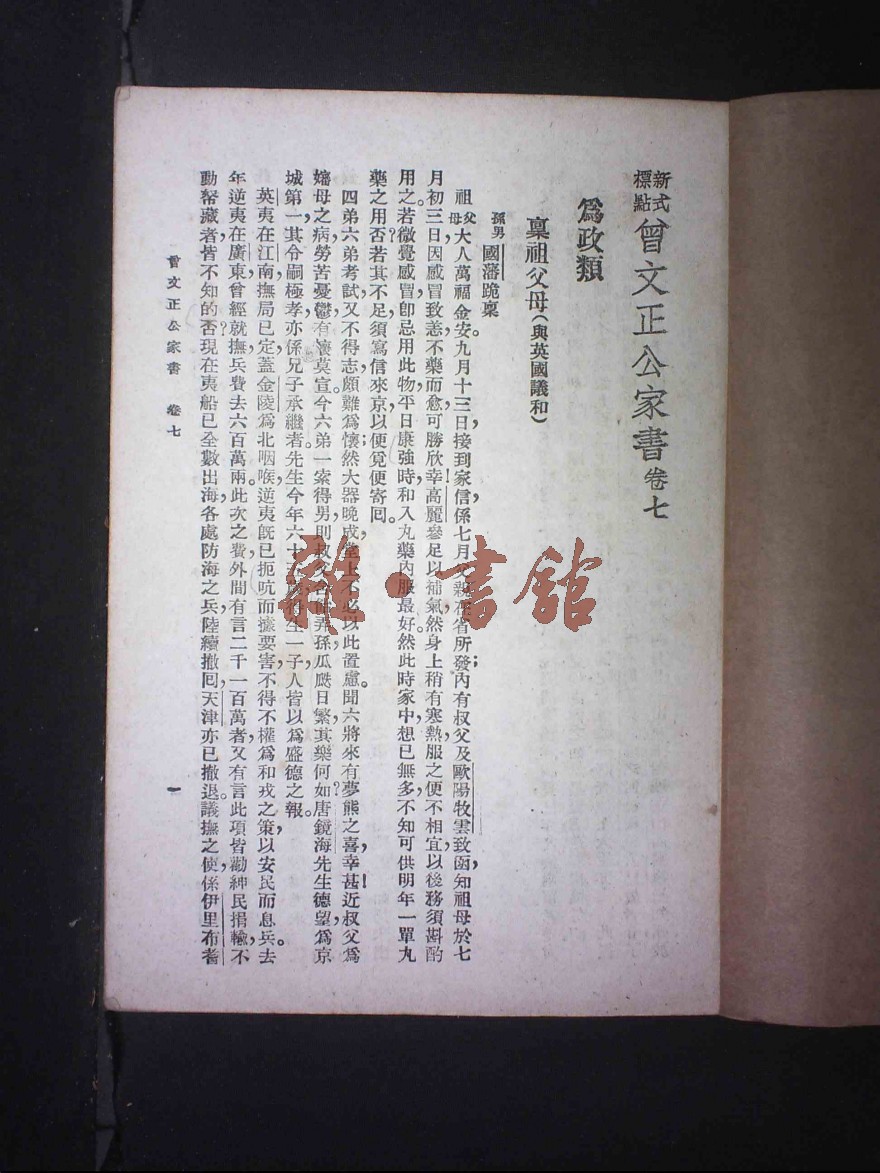 新式標點曾文正公家書卷七
爲政類
稟祖父母(與英國議和)
孫男國藩跪稟
祖父母大人萬福金安。九月十三日,接到家信,係七月父親在省所發,內有叔父及歐陽牧雲致函,知祖母於七
月初三日因感冒致恙,不藥而愈,可勝欣幸!高麗參足以補氣,然身上稍有寒熱,服之便不相宜,以後務須斟酌
用之。若微覺感冒,卽忌用此物。平日康強時,和入丸藥內服最好。然此時家中想已無多,不知可供明年一單丸
藥之用否?若其不足,須寫信來京,以便覓便寄囘。
四弟六弟考試,又不得志,頗難爲懷;然大器晚成,堂上不必以此置慮。聞六將來有夢熊之喜,幸甚!近叔父爲
嬸母之病,勞苦憂鬱,有懷莫宣。今六弟一索得男,則叔父含飴弄孫,瓜瓞日繁,其樂何如?唐鏡海先生德望爲京
城第一,其令嗣極孝,亦係兄子承繼者。先生今年六十 生一子,人皆以爲盛德之報。
英夷在江南,撫局已定,蓋金陵爲北咽喉,逆夷旣已扼吭而據要害,不得不權爲和戎之策,以安民而息兵。去
年逆夷在廣東曾經就撫,兵費去六百萬兩。此次之費,外間有言二千一百萬者,又有言此項皆勸紳民捐輸,不
動帑藏者,皆不知的否?現在夷船已全數出海,各處防海之兵,陸續撤囘,天津亦已撤退。議撫之使,係伊里布耆
曾文正公家書 卷七
一
雜·書館